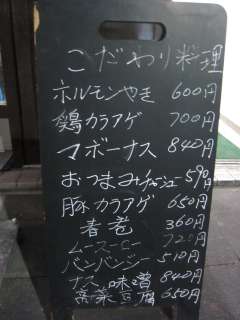 こだわり料理
ホルモンやき 600円
鶏カラアゲ 700円
マボーナス 840円
おつまみチャーシュー 590円
豚カラアゲ 650円
春巻 360円
ムースーロー 720円
バンバンジー 510円
ナス味噌 840円
高菜豆腐 650円